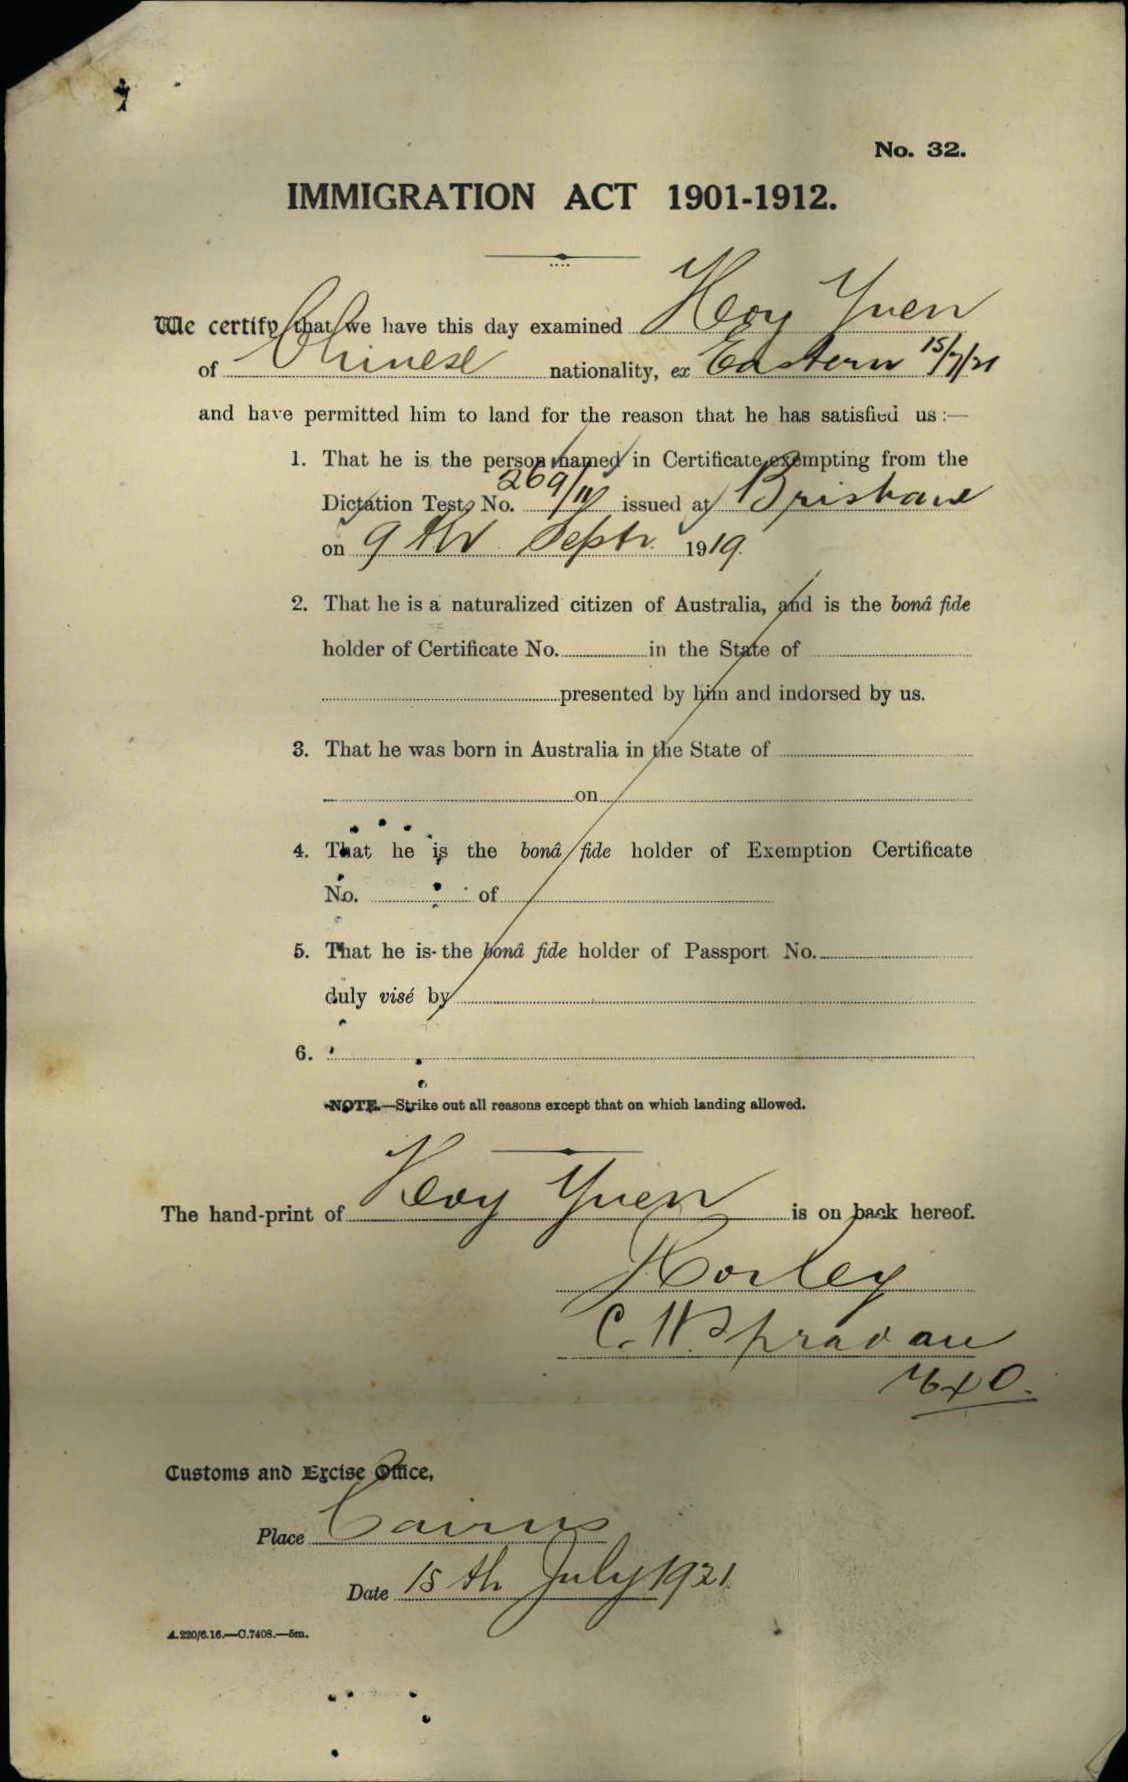 No. 32.
IMMIGRATION ACT 1901-1912.
We certify that we have this day examined Hoy Yuen
of Chinese nationality, ex Eastern 15/7/21
and have permitted him to land for the reason that he has satisfied us:—
1. That he is the person named in Certificate exempting from the
Dictation Test, No. 269/11 issued at Brisbane
on 9th Septr. 1919.
2. That he is a naturalized citizen of Australia, and is the bonâ fide
holder of Certificate No. in the State of
presented by him and indorsed by us.
3. That he was born in Australia in the State of
on
4. That he is the bonâ fide holder of Exemption Certificate
No. of
5. That he is the bonâ fide holder of Passport No.
duly visé by
6.
NOTE.—Strike out all reasons except that on which landing allowed.
The hand-print of Hoy Yuen is on back hereof.
C. W.
Customs and Excise Office,
Place Cairns
Date 15th July 1921.
A.220/6.16.—C.7408.—5m.